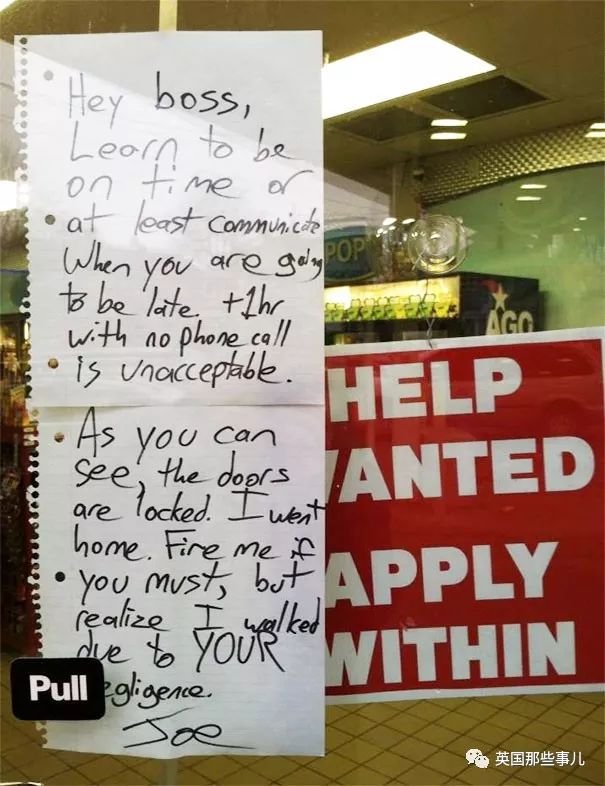 Hey boss,
Learn to be
on time or
at least communicate
When you are going
to be late. +1hr
with no phone call
is unacceptable.
As you can
see, the doors
are locked. I went
home. Fire me if
you must, but
realize I walked
due to YOUR
egligence.
Joe
Pull
POP
AGO
HELP
WANTED
APPLY
WITHIN
英国那些事儿